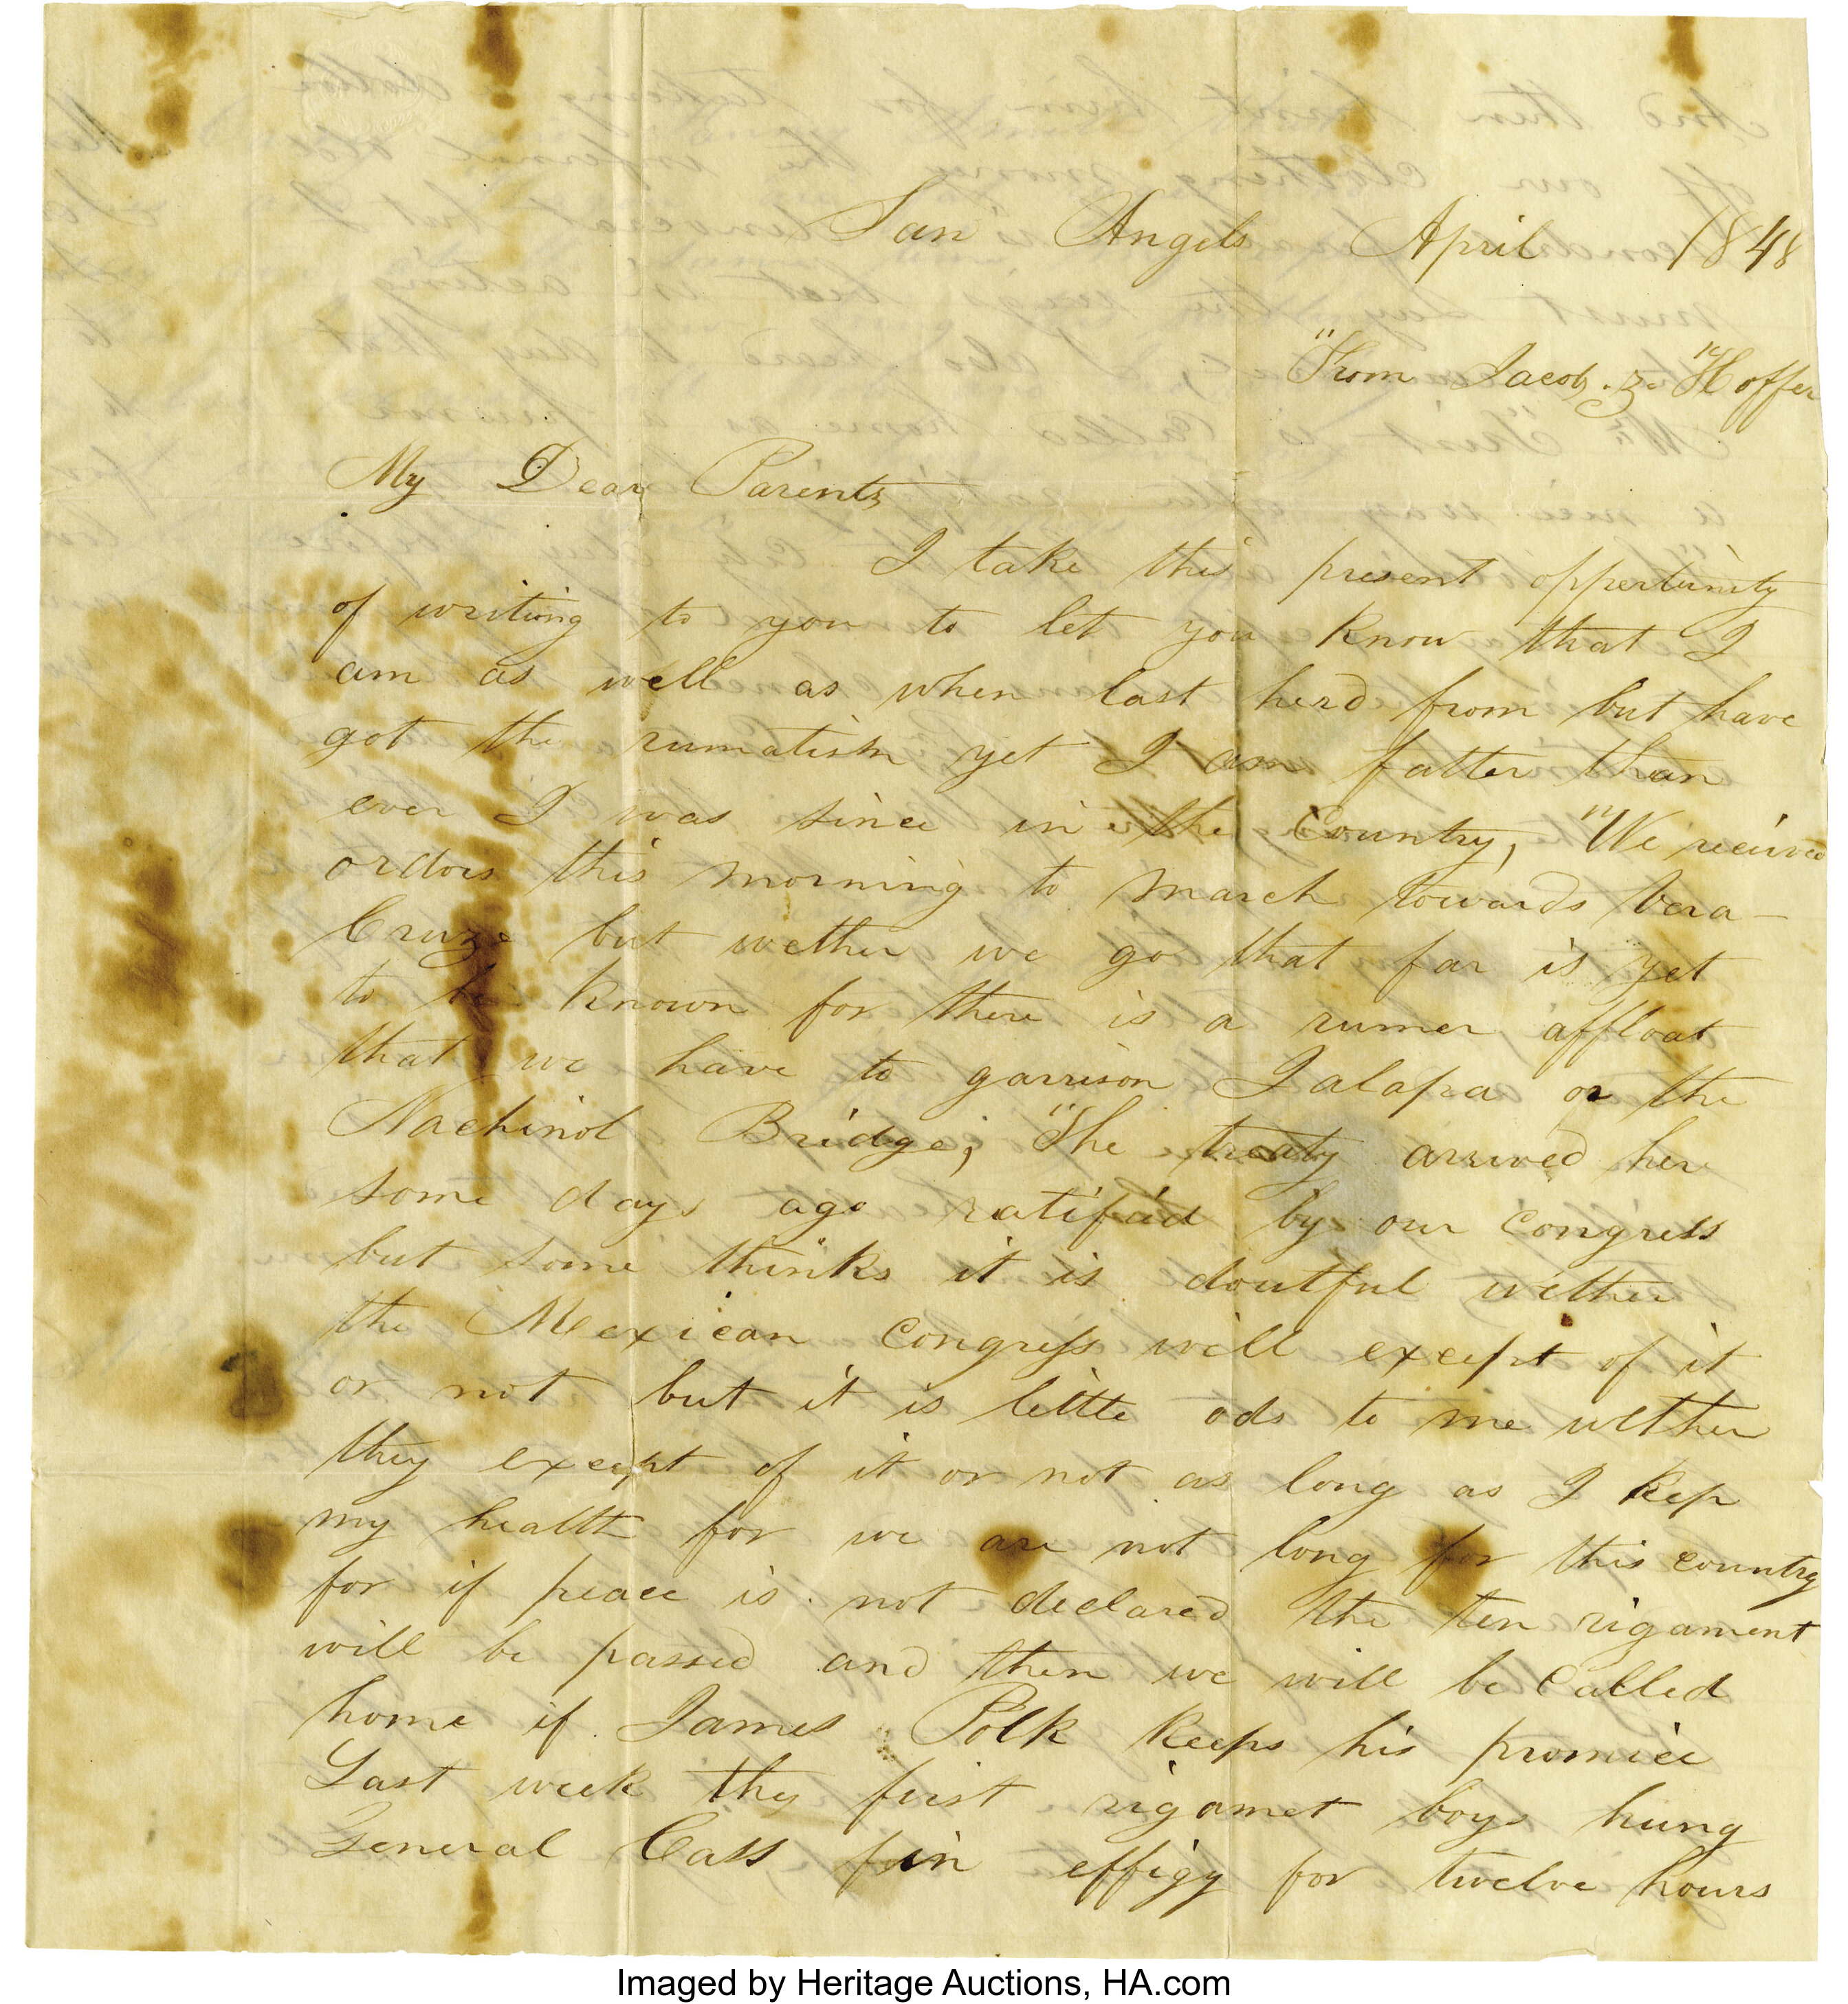 San Angels April 1848
"From Jacob. Z. "Hoffer
My Dear Parents
I take this present oppertunity
of writing to you to let you know that I
am as well as when last herd from but have
got the rumatism yet I am fatter than
ever I was since in the Country, "We reicived
ordors this morning to march towards Vera-
Cruze but wether we go that far is yet
to be known for there is a rumer affloat
that we have to garrison Jalapa or the
Nachinol Bridge; "The treaty arrived here
some days ago ratified by our Congress
but some thinks it is doutful wether
the Mexican Congress will except of it
or not but it is little ods to me wether
they except of it or not as long as I kep
my health for we are not long for this country
for if peace is not declared the ten rigament
will be passed and then we will be Called
home if James Polk keeps his promice
Last week they first rigamet boys hung
General Cass in effigy for twelve hours
Imaged by Heritage Auctions, HA.com